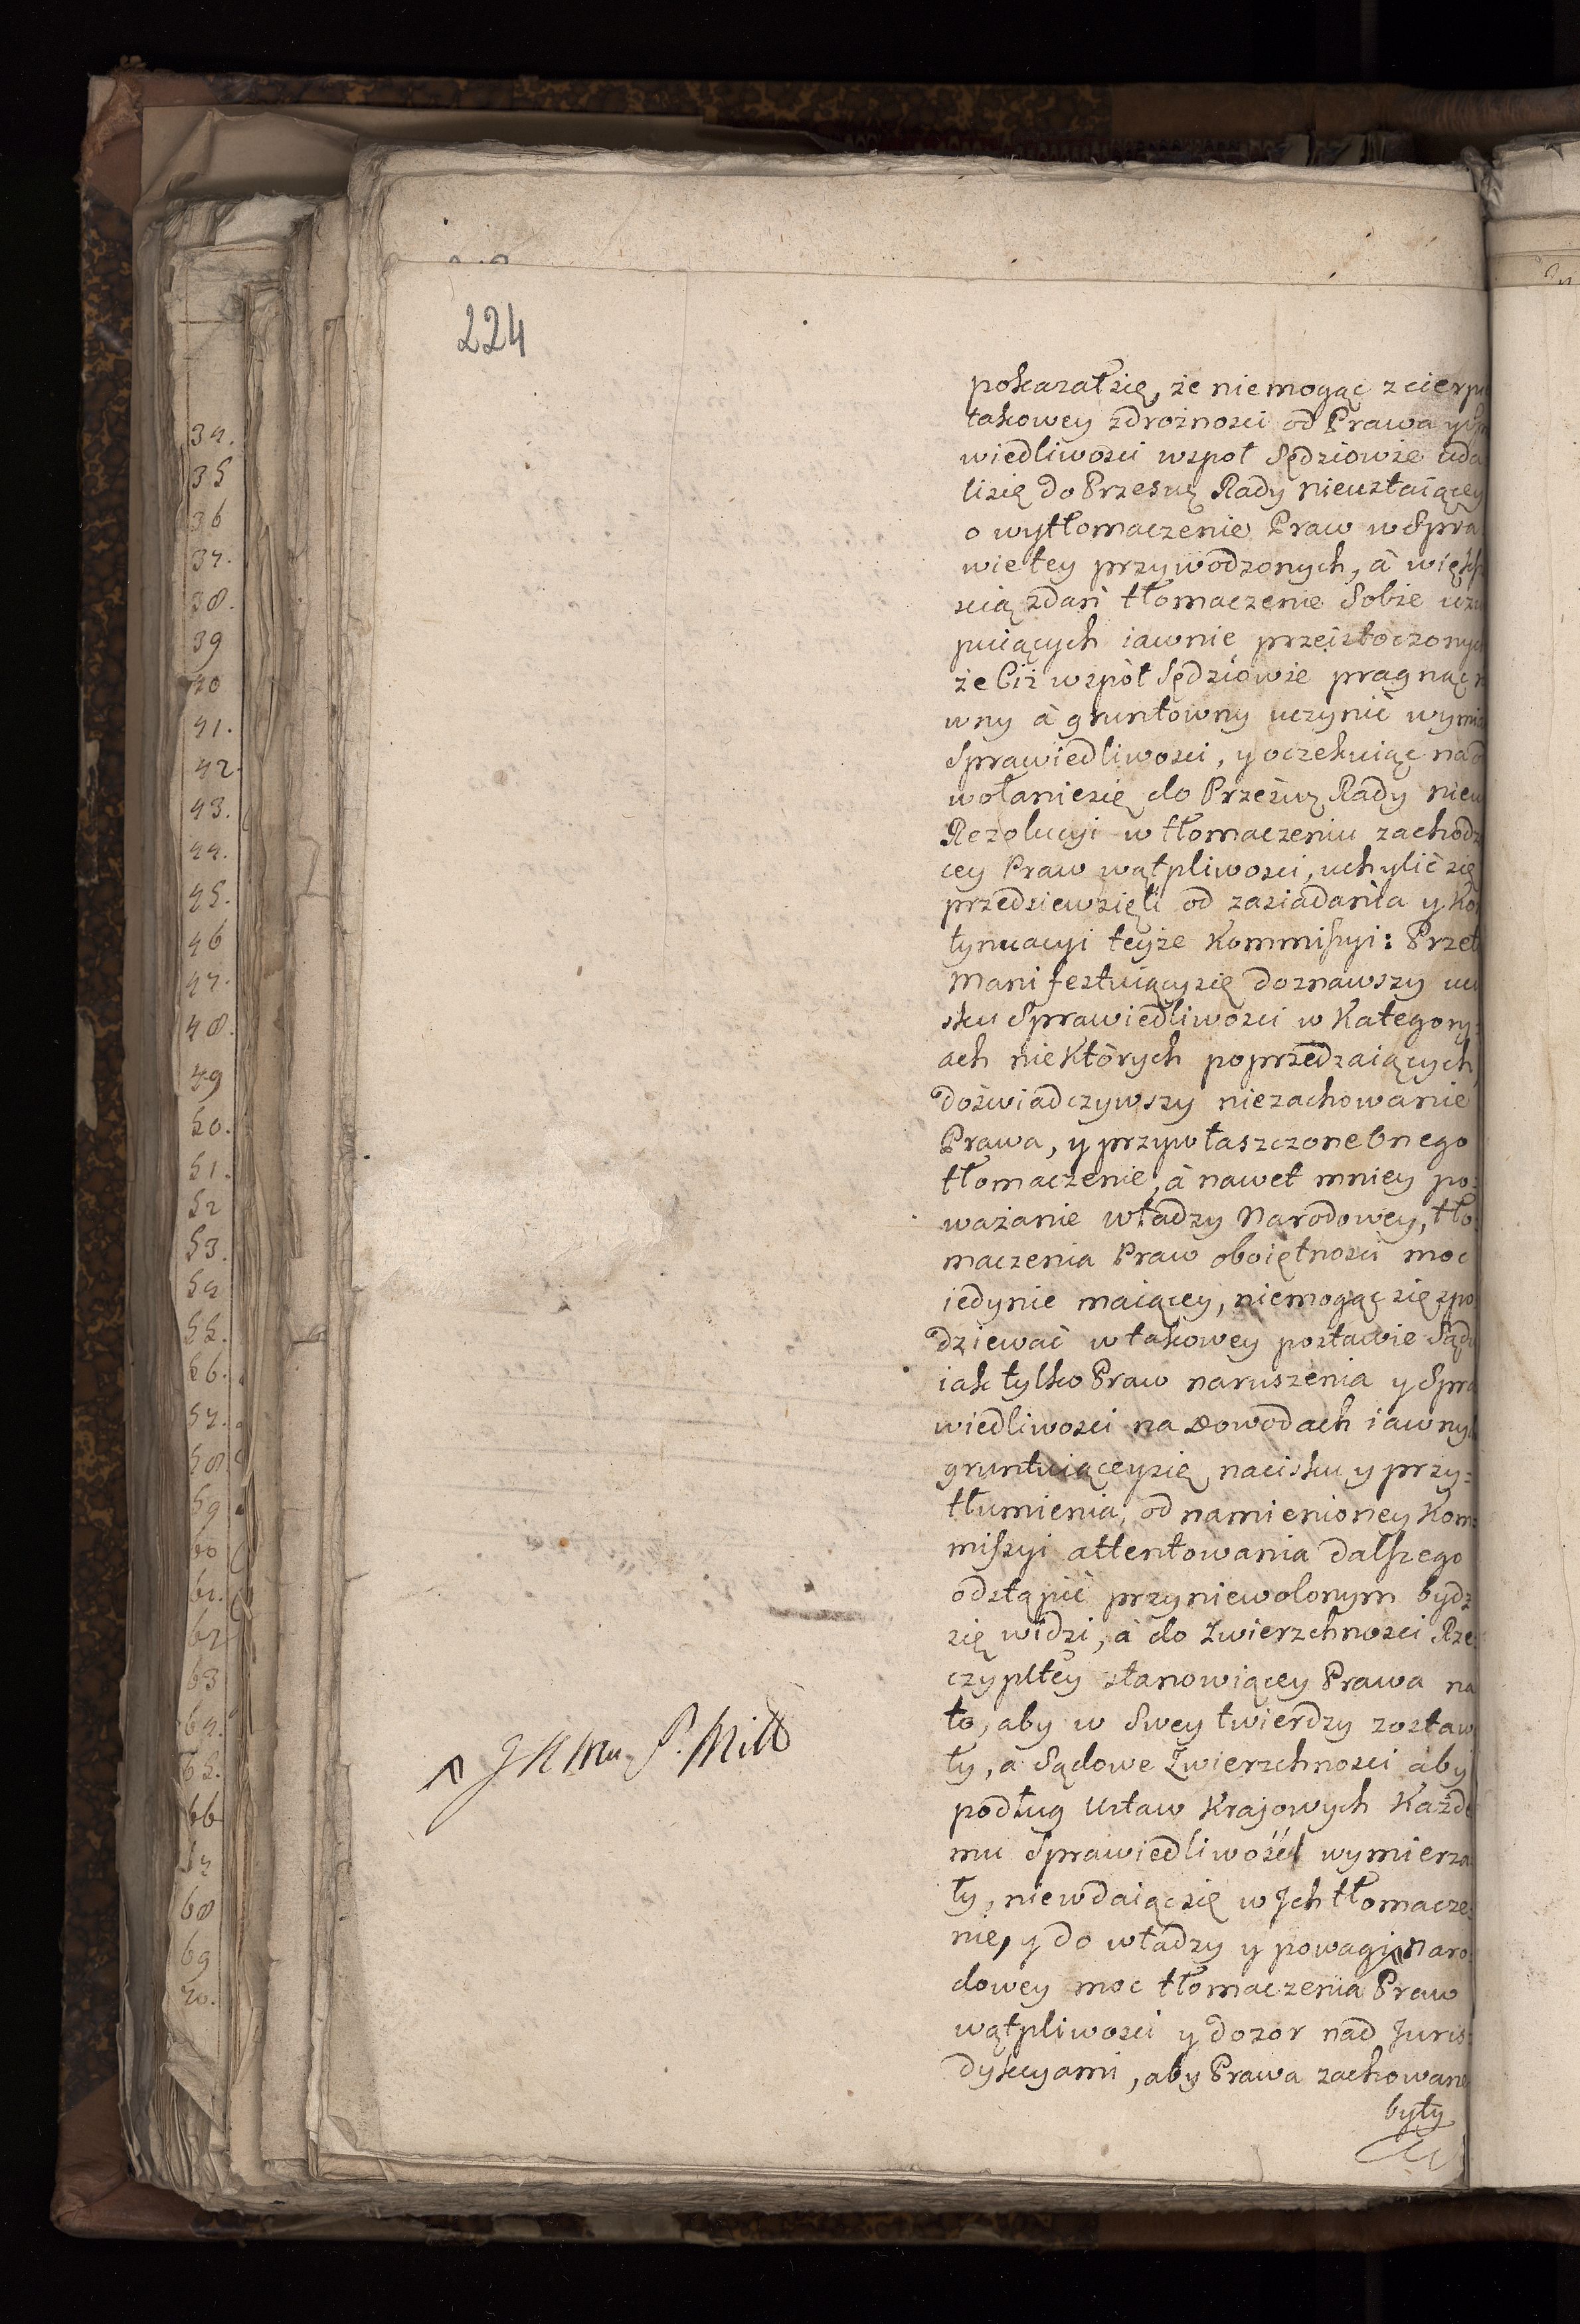 224
pokazał się, że niemogąc zcierp
takowey zdrożnosci od Prawa y
wiedliwosci wspoł Sędziowie uda
lisię do Przesw Rady nieustaiącey
o wytłomaczenie Praw w Spra
wie tey przywodzonych, à więks
scią zdań tłomaczenie Sobie uzu
puiących iawnie przeistoczonych
że Ciż wspòł Sędziowie pragnąc
wny à gruntowny uczynić wymia
Sprawiedliwosci, y oczekuiąc nad
wołaniesię do Prześwi Rady nieu
Rezolucyi w tłomaczeniu zachodz
cey Praw wątpliwosci, uchylić się
przedsiewzięli od zasiadania y Kon
tynuacyi teyże Kommissyi: Przeto
Manifestuiącysię doznawszy uci
sku Sprawiedliwosci w Kategory:
ach niektòrych poprzedzaiących,
doświadczywszy niezachowanie
Prawa, y przywłaszczone Onego
tłomaczenie, à nawet mniey po:
ważanie władzy Narodowey, tło:
maczenia Praw oboiętnosci moc
iedynie maiącey, niemogąc się spo
dziewać w takowey postawie Sądu
iak tylko Praw naruszenia y Spra
wiedliwosci na Dowodach iawnych
gruntuiąceysię nacisku y przy:
tłumienia, od namienioney Kom:
missyi attentowania dalszego
odstąpić przyniewolonym bydz
się widzi, à do Zwierzchnosci Rze:
czypltey stanowiącey Prawa na
to, aby w Swey twierdzy zostaw
ły, a Sądowe Zwierzchnosci aby
podług Ustaw Krajowych Każde
mu Sprawiedliwość wymierza
ły, niewdaiąc się w Jch tłomacze:
nie, y do władzy y powagi Naro:
dowey moc tłomaczenia Praw
wątpliwosci y dozor nad Juris:
dykcyami, aby Prawa zachowane
były
34.
35
36
37.
38.
39
40
41.
42.
43.
44.
45.
46
47.
48.
49
50.
51.
52
53.
54
55.
56.
57.
58
59
60
61.
62
63
64.
65.
66
67
68
69
70.